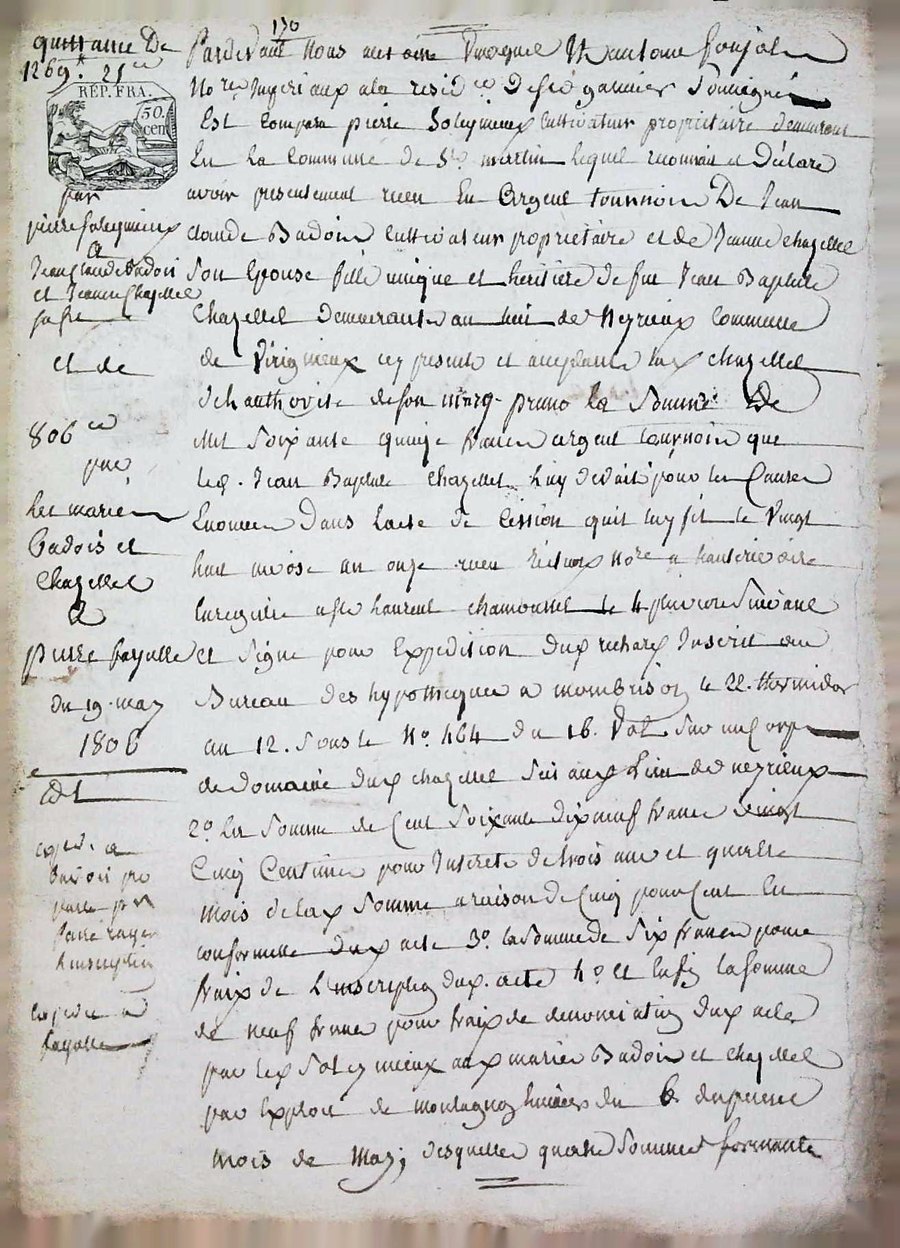 130
quittance De
1269.# 21 ce
REP. FRA.
50. cen
par
pierre Soleymieux
a
Jean Claude Badoit
et Jeanne Chazellet
sa fe
et de
806 ce
par
les mariés
Badois et
Chazellet
a
pierre fayolle
du 19 may
1806
expéd. a
Badois
faire rayer
l'inscription
expédié a
fayolle
Pardevant Nous Antoine et antoine
No.res Imperiaux a la resid.ce De St. galmier Soussignés
Est Comparu pierre Soleymieux Cultivateur propriétaire demeurant
En La Commune de St. martin lequel reconnait et Déclare
avoir presentement recu En Argent tournois De Jean
claude Badois Cultivateur propriétaire et de Jeanne chazellet
Son Epouse fille unique et heritiere de feu Jean Baptiste
Chazellet Demeurants au lieu de Neyrieux Commune
de Virigneux cy presents et acceptants lad. chazellet
d'hauthorité de son mary. primo la Somme De
mil Soixante quinze francs argent tournois que
led. Jean Baptiste Chazellet luy devait pour les Causes
Enoncées Dans l'acte de Cession qu'il luy fit le Vingt
huit nivose an onze recu No.re a
Enregistré a St. laurent chamousset le 4 pluviose Suivant
et Signé pour Expédition Inscrit au
Bureau des hypothèques a monbrison le 22. thermidor
an 12. Sous le No. 464 du 16. Vol. Sur un Corp
de Domaine dud. chazellet Sis aud. Lieu de neyrieux
2o. La Somme de Cent Soixante dix neuf francs vingt
Cinq Centimes pour Interets de trois ans et quatre
mois de lad. Somme a raison de Cinq pour Cent En
conformité dud. acte 3o. la Somme de Six francs pour
fraix de L'inscription dud. acte 4o. et Enfin la Somme
de neuf francs pour fraix de denonciation dud. acte
par led. Soleymieux aux mariés Badois et chazellet
par Exploit de montagnon huissier du 6 du present
mois de May; desquelles quatre Sommes formants